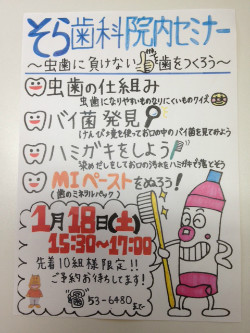 そら歯科院内セミナー
～虫歯に負けない歯をつくろう～
虫歯の仕組み
虫歯になりやすいものなりにくいものクイズ
バイ菌発見
けんび鏡を使ってお口の中のバイ菌を見てみよう
ハミガキをしよう
染めだしをしてお口の汚れをハミガキで落とそう
MIペーストをぬろう!
(歯のミネラルパック)
1月18日(土)
15:30～17:00
先着10組様限定!!
ご予約お待ちしてます!
53-6480まで